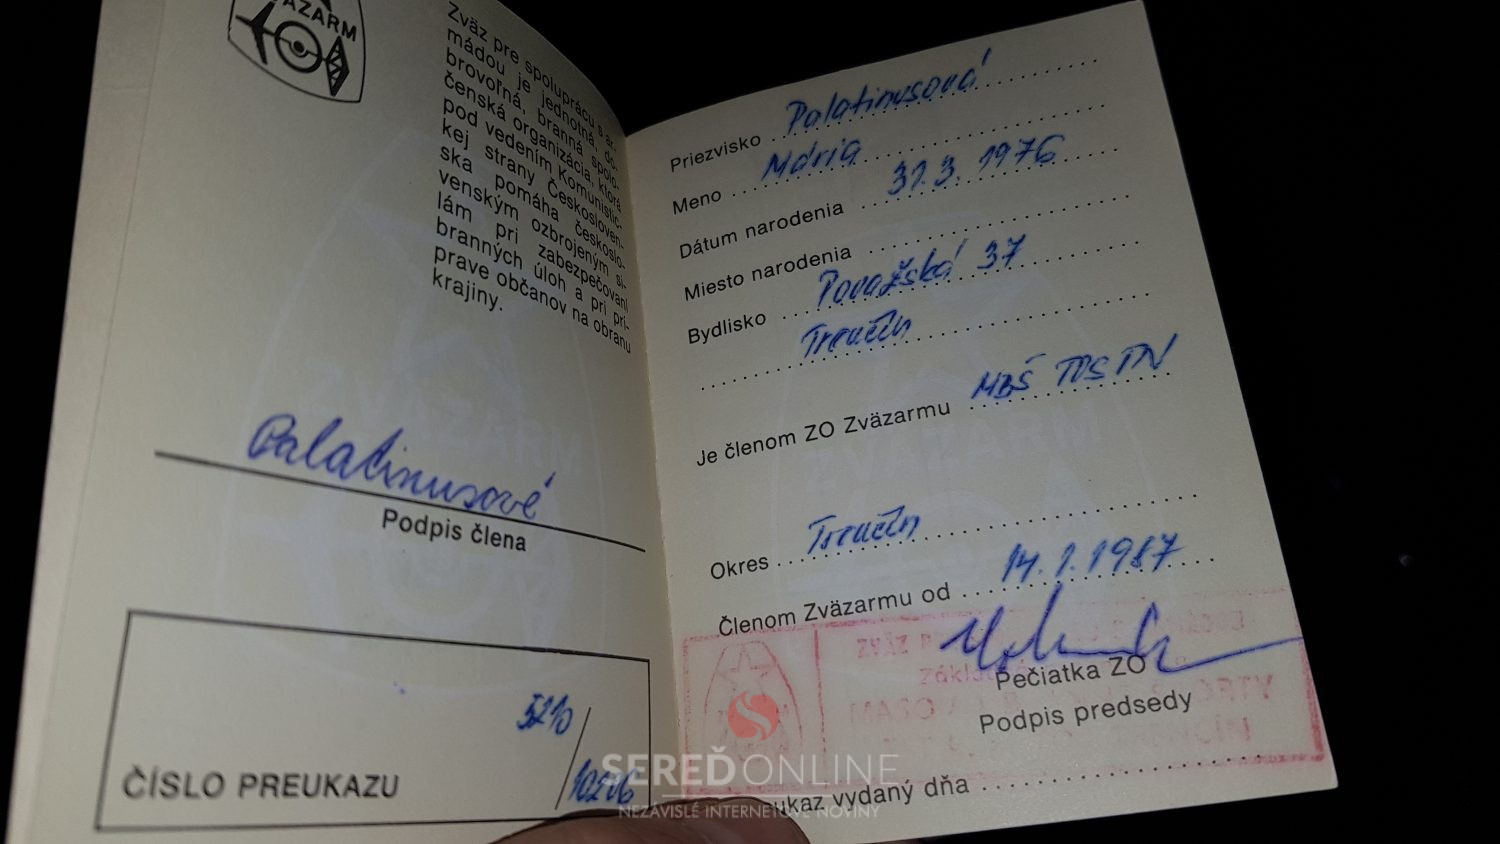 ZARM
Zväz pre spoluprácu s ar-
mádou je jednotná, do-
brovoľná, branná spolo-
čenská organizácia, ktorá
pod vedením Komunistic-
kej strany Českosloven-
ska pomáha českoslo-
venským ozbrojeným si-
lám pri zabezpečovaní
branných úloh a pri prí-
prave občanov na obranu
krajiny.
Palatinusová
Podpis člena
5210/10206
ČÍSLO PREUKAZU
Priezvisko Palatinusová
Meno Mária
Dátum narodenia 31.3. 1976
Miesto narodenia
Bydlisko Považská 37
Trenčín
Je členom ZO Zväzarmu MBŠ TOS TN
Okres Trenčín
Členom Zväzarmu od 14.1.1987
ZVÄZ
Pečiatka ZO
Podpis predsedy
ukaz vydaný dňa
SEREĎONLINE
NEZÁVISLÉ INTERNETOVÉ NOVINY